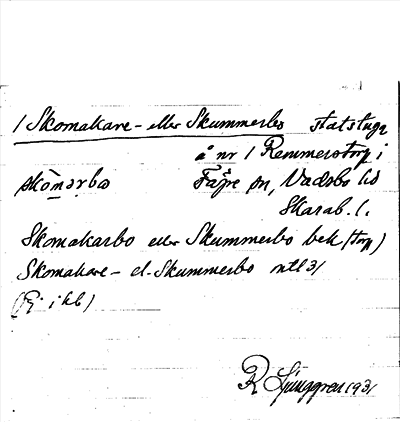 1 Skomakare- eller Skummerbo statstuga
å nr 1 Remmerstorp i
skömärba Fägre sn, Vadsbo hd
Skarab. l.
Skomakarbo eller Skummerbo bek (torp)
Skomakare- el. Skummerbo mtl 31
(Ej i kb)
R Ljunggren 1931